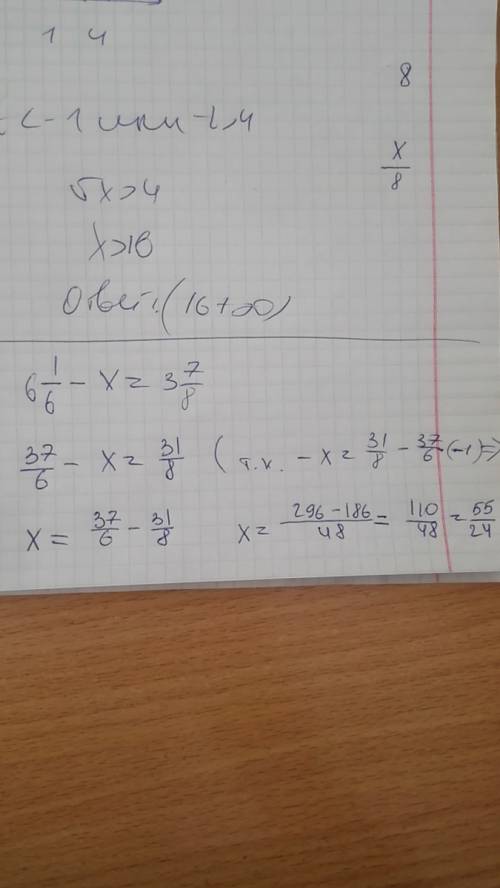 1 4
8
< -1 или -1 > 4
x/8
√x > 4
x > 16
Ответ: (16 +∞)
6 1/6 - x = 3 7/8
37/6 - x = 31/8 ( т.к. - x = 31/8 - 37/6 (-1) =>
x = 37/6 - 31/8 x = 296 - 186/48 = 110/48 = 55/24